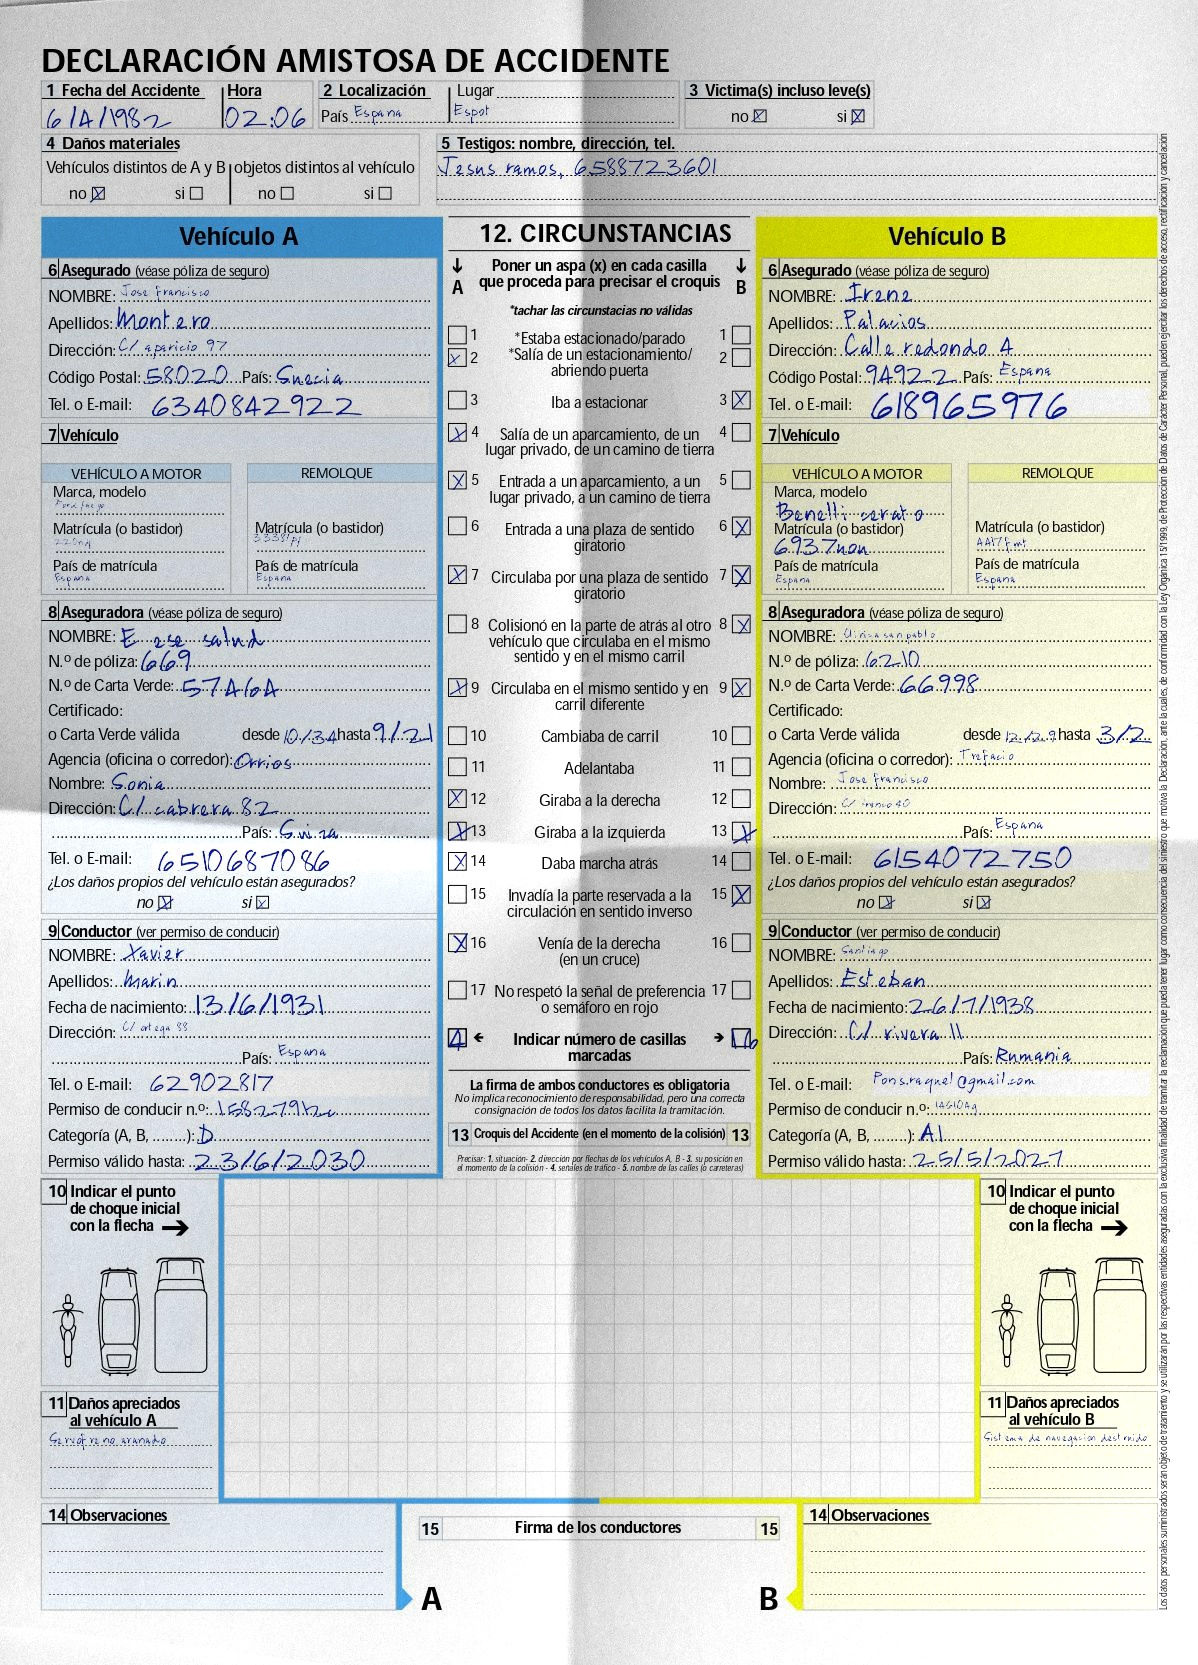 DECLARACIÓN AMISTOSA DE ACCIDENTE
1 Fecha del Accidente Hora 2 Localización Lugar 3 Victima(s) incluso leve(s)
6/4/1982 02:06 País España Espot no si
4 Daños materiales
Vehículos distintos de A y B objetos distintos al vehículo
no si no si
5 Testigos: nombre, dirección, tel.
Jesus ramos, 6588723601
Vehículo A
6 Asegurado (véase póliza de seguro)
NOMBRE: Jose Francisco
Apellidos: Montero
Dirección: C/ aparicio 97
Código Postal: 58020 País: Suecia
Tel. o E-mail: 6340842922
7 Vehículo
VEHÍCULO A MOTOR REMOLQUE
Marca, modelo
Matrícula (o bastidor) Matrícula (o bastidor)
País de matrícula País de matrícula
España España
8 Aseguradora (véase póliza de seguro)
NOMBRE: E ese salud
N.º de póliza: 669
N.º de Carta Verde: 57464
Certificado:
o Carta Verde válida desde 10/34 hasta 9/21
Agencia (oficina o corredor): Orrios
Nombre: Sonia
Dirección: C/ cabrera 82
País: Suiza
Tel. o E-mail: 6510687086
¿Los daños propios del vehículo están asegurados?
no si
9 Conductor (ver permiso de conducir)
NOMBRE: Xavier
Apellidos: Marin
Fecha de nacimiento: 13/6/1931
Dirección: C/ ortega 88
País: España
Tel. o E-mail: 62902817
Permiso de conducir n.º:
Categoría (A, B, ........): D
Permiso válido hasta: 23/6/2030
12. CIRCUNSTANCIAS
A Poner un aspa (x) en cada casilla que proceda para precisar el croquis B
*tachar las circunstacias no válidas
1 *Estaba estacionado/parado 1
2 *Salía de un estacionamiento/ 2
abriendo puerta
3 Iba a estacionar 3
4 Salía de un aparcamiento, de un 4
lugar privado, de un camino de tierra
5 Entrada a un aparcamiento, a un 5
lugar privado, a un camino de tierra
6 Entrada a una plaza de sentido 6
giratorio
7 Circulaba por una plaza de sentido 7
giratorio
8 Colisionó en la parte de atrás al otro 8
vehículo que circulaba en el mismo
sentido y en el mismo carril
9 Circulaba en el mismo sentido y en 9
carril diferente
10 Cambiaba de carril 10
11 Adelantaba 11
12 Giraba a la derecha 12
13 Giraba a la izquierda 13
14 Daba marcha atrás 14
15 Invadía la parte reservada a la 15
circulación en sentido inverso
16 Venía de la derecha 16
(en un cruce)
17 No respetó la señal de preferencia 17
o semáforo en rojo
4 Indicar número de casillas 16
marcadas
La firma de ambos conductores es obligatoria
No implica reconocimiento de responsabilidad, pero una correcta
consignación de todos los datos facilita la tramitación.
13 Croquis del Accidente (en el momento de la colisión) 13
Precisar: 1. situación- 2. dirección por flechas de los vehículos A, B - 3. su posición en
el momento de la colisión - 4. señales de tráfico - 5. nombre de las calles (o carreteras)
Vehículo B
6 Asegurado (véase póliza de seguro)
NOMBRE: Irene
Apellidos: Palacios
Dirección: Calle redondo 4
Código Postal: 94922 País: España
Tel. o E-mail: 618965976
7 Vehículo
VEHÍCULO A MOTOR REMOLQUE
Marca, modelo
Benelli cerato
Matrícula (o bastidor) Matrícula (o bastidor)
6937non
País de matrícula País de matrícula
España España
8 Aseguradora (véase póliza de seguro)
NOMBRE: Clinica san pablo
N.º de póliza: 6210
N.º de Carta Verde: 66998
Certificado:
o Carta Verde válida desde 12/29 hasta 3/2
Agencia (oficina o corredor): Trefacio
Nombre: Jose Francisco
Dirección: C/ franco 40
País: España
Tel. o E-mail: 6154072750
¿Los daños propios del vehículo están asegurados?
no si
9 Conductor (ver permiso de conducir)
NOMBRE: Santiago
Apellidos: Esteban
Fecha de nacimiento: 26/7/1938
Dirección: C/ rivera 11
País: Rumania
Tel. o E-mail: Pons.raquel@gmail.com
Permiso de conducir n.º:
Categoría (A, B, ........): A1
Permiso válido hasta: 25/5/2027
10 Indicar el punto
de choque inicial
con la flecha
11 Daños apreciados
al vehículo A
Servofreno aranado
10 Indicar el punto
de choque inicial
con la flecha
11 Daños apreciados
al vehículo B
Sistema de navegacion destruido
14 Observaciones
15 Firma de los conductores 15
A B
14 Observaciones
Los datos personales suministrados seran objeto de tratamiento y se utilizaran por las respectivas entidades aseguradas con la exclusiva finalidad de tramitar la reclamación que pueda tener lugar como consecuencia del siniestro que motiva la Declaración, ante la cuales, de conformidad con la Ley Organica 15/1999, de Protección de Datos de Carácter Personal, pueden ejercitar los derechos de acceso, rectificación y cancelación